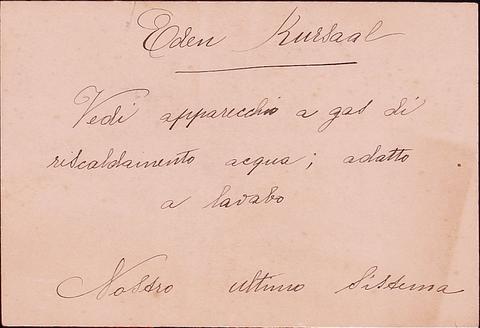 Eden Kursaal
Vedi apparecchio a gas di
riscaldamento acqua; adatto
a lavabo
Nostro ultimo sistema